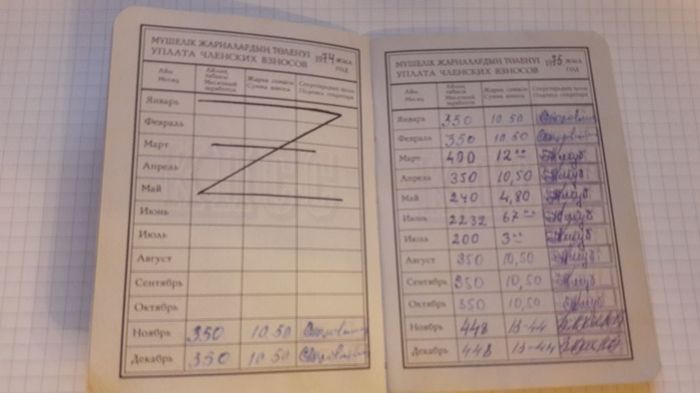 МҮШЕЛІК ЖАРНАЛАРДЫҢ ТӨЛЕНУІ
УПЛАТА ЧЛЕНСКИХ ВЗНОСОВ
1974 ЖЫЛ
ГОД
Айы
Месяц
Айлық табысы
Месячный заработок
Жарна сомасы
Сумма взноса
Секретардың қолы
Подпись секретаря
Январь
Февраль
Март
Апрель
Май
Июнь
Июль
Август
Сентябрь
Октябрь
Ноябрь 350 10.50
Декабрь 350 10.50
МҮШЕЛІК ЖАРНАЛАРДЫҢ ТӨЛЕНУІ
УПЛАТА ЧЛЕНСКИХ ВЗНОСОВ
1975 ЖЫЛ
ГОД
Айы
Месяц
Айлық табысы
Месячный заработок
Жарна сомасы
Сумма взноса
Секретардың қолы
Подпись секретаря
Январь 350 10.50
Февраль 350 10.50
Март 400 12
Апрель 350 10,50
Май 240 4,80
Июнь 2232 67
Июль 200 3
Август 350 10,50
Сентябрь 350 10,50
Октябрь 350 10,50
Ноябрь 448 13-44
Декабрь 448 13-44